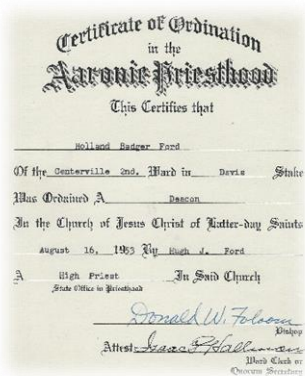 Certificate of Ordination
in the
Aaronic Priesthood
This Certifies that
Holland Badger Ford
Of the Centerville 2nd. Ward in Davis Stake
Was Ordained A Deacon
In the Church of Jesus Christ of Latter-day Saints
August 16, 1953 By Hugh J. Ford
A High Priest In Said Church
State Office in Priesthood
Donald W.
Bishop
Attest
Ward Clerk or
Quorum Secretary